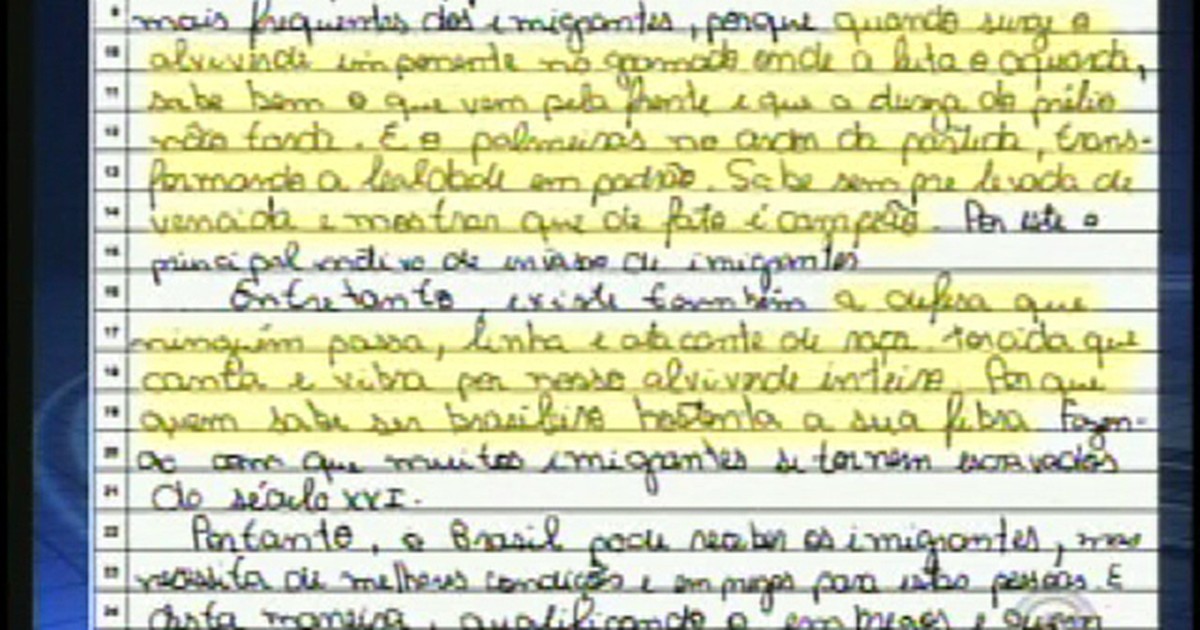 9 mais frequentes dos imigrantes, porque quando surge o
10 alviverde imponente no gramado onde a luta o aguarda,
11 sabe bem o que vem pela frente e que a dureza do prélio
12 não tarda. E o palmeiras no ardor da partida, trans-
13 formando a lealdade em padrão. Sabe sempre levada de
14 vencida e mostrar que de fato é campeão. Por este o
15 principal motivo de invasão de imigrantes
16 Entretanto, existe também a defesa que
17 ninguém passa, linha e atacante de raça torcida que
18 canta e vibra por nosso alviverde inteiro. Porque
19 quem sabe ser brasileiro hostenta a sua fibra. Fazen-
20 do com que muitos imigrantes se tornem
21 do século XXI.
22 Portanto, o Brasil pode receber os imigrantes, mas
23 necessita de melhores condições e empregos para estas pessoas. E
24 desta maneira, qualificando o empregos e